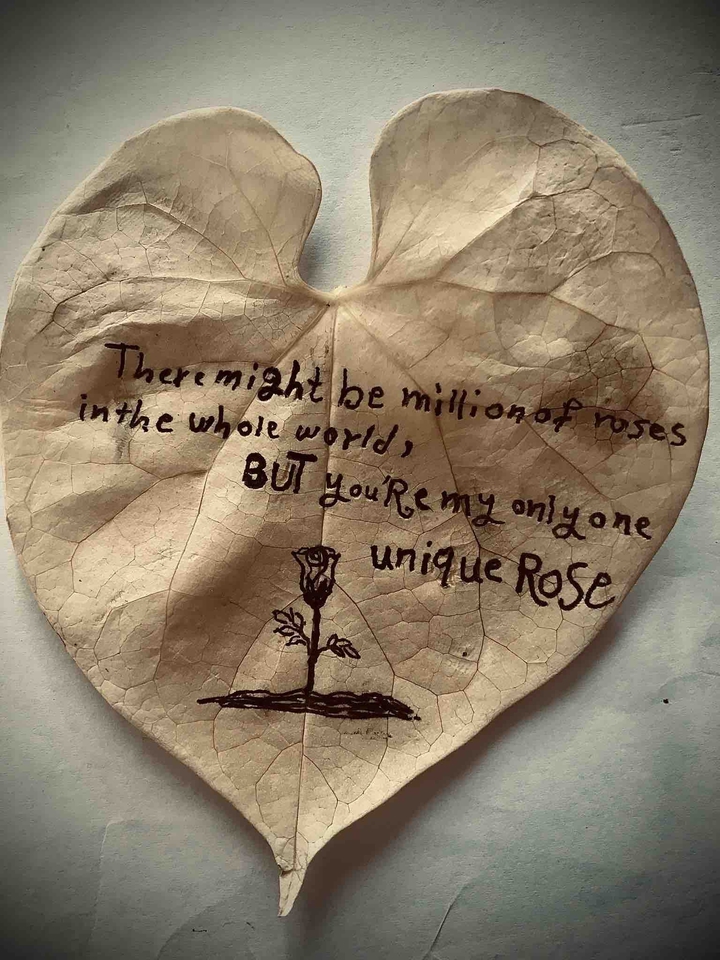 There might be million of roses
in the whole world,
BUT you'Re my only one
unique RoSe